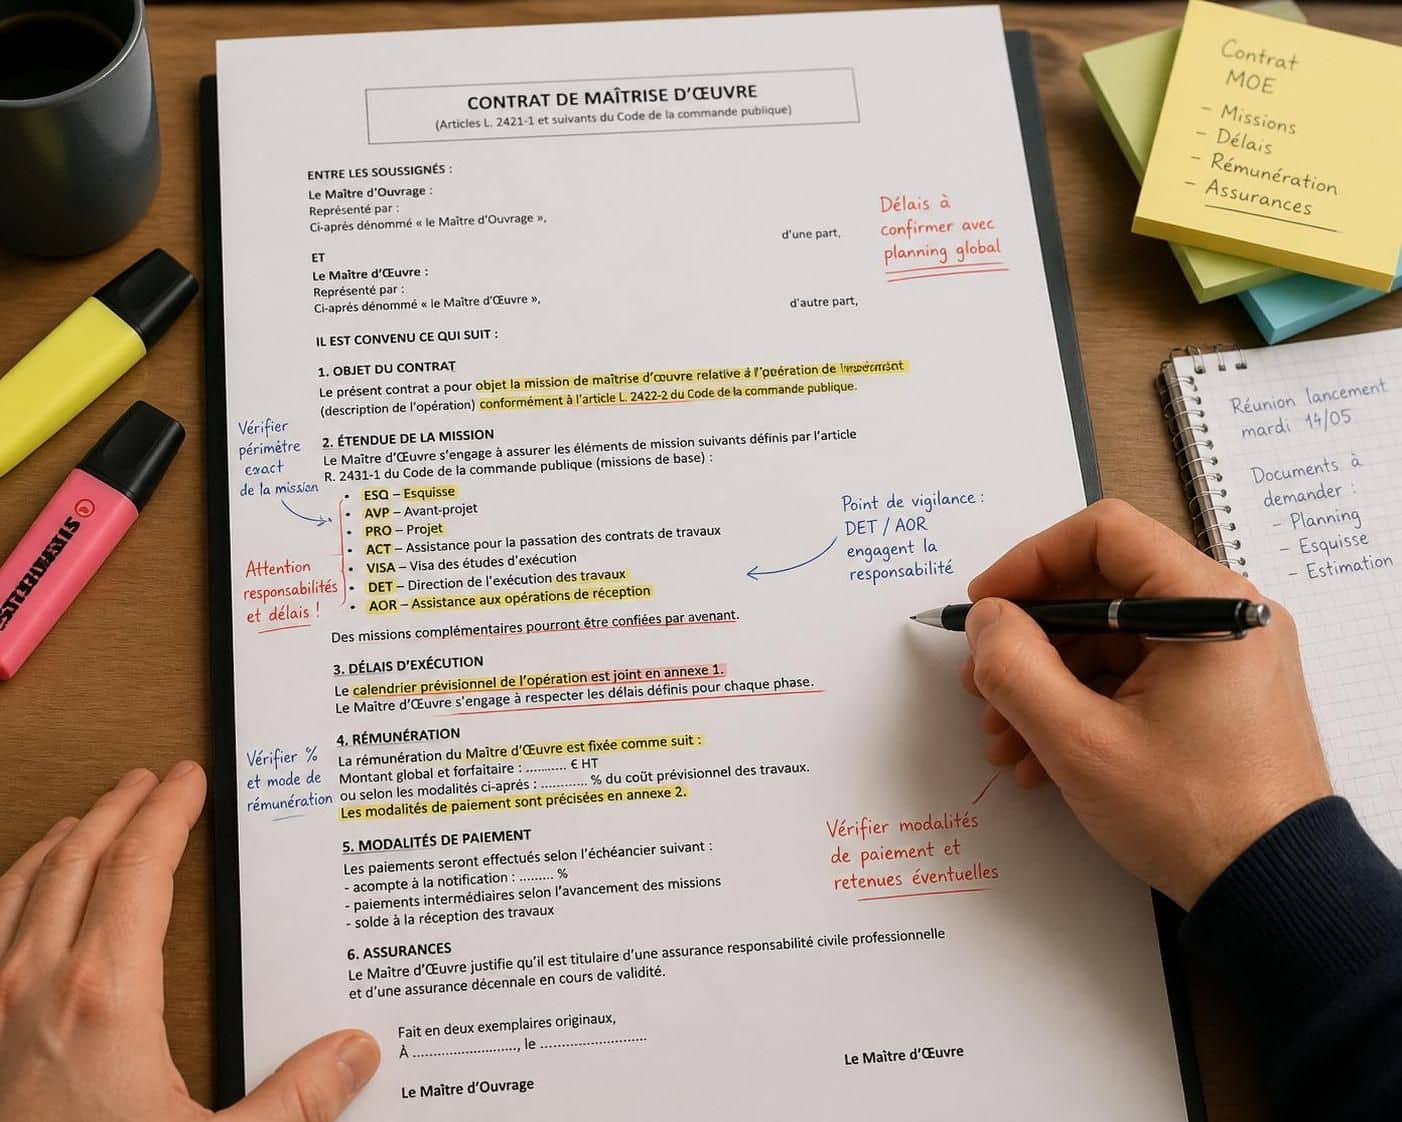 CONTRAT DE MAÎTRISE D'ŒUVRE
(Articles L. 2421-1 et suivants du Code de la commande publique)
ENTRE LES SOUSSIGNÉS :
Le Maître d'Ouvrage :
Représenté par :
Ci-après dénommé « le Maître d'Ouvrage »,
d'une part,
ET
Le Maître d'Œuvre :
Représenté par :
Ci-après dénommé « le Maître d'Œuvre »,
d'autre part,
IL EST CONVENU CE QUI SUIT :
1. OBJET DU CONTRAT
Le présent contrat a pour objet la mission de maîtrise d'œuvre relative à l'opération de
(description de l'opération) conformément à l'article L. 2422-2 du Code de la commande publique.
2. ÉTENDUE DE LA MISSION
Le Maître d'Œuvre s'engage à assurer les éléments de mission suivants définis par l'article
R. 2431-1 du Code de la commande publique (missions de base) :
• ESQ – Esquisse
• AVP – Avant-projet
• PRO – Projet
• ACT – Assistance pour la passation des contrats de travaux
• VISA – Visa des études d'exécution
• DET – Direction de l'exécution des travaux
• AOR – Assistance aux opérations de réception
Des missions complémentaires pourront être confiées par avenant.
3. DÉLAIS D'EXÉCUTION
Le calendrier prévisionnel de l'opération est joint en annexe 1.
Le Maître d'Œuvre s'engage à respecter les délais définis pour chaque phase.
4. RÉMUNÉRATION
La rémunération du Maître d'Œuvre est fixée comme suit :
Montant global et forfaitaire : .......... € HT
ou selon les modalités ci-après : ............ % du coût prévisionnel des travaux.
Les modalités de paiement sont précisées en annexe 2.
5. MODALITÉS DE PAIEMENT
Les paiements seront effectués selon l'échéancier suivant :
- acompte à la notification : ......... %
- paiements intermédiaires selon l'avancement des missions
- solde à la réception des travaux
6. ASSURANCES
Le Maître d'Œuvre justifie qu'il est titulaire d'une assurance responsabilité civile professionnelle
et d'une assurance décennale en cours de validité.
Fait en deux exemplaires originaux,
À .........................., le ..........................
Le Maître d'Ouvrage
Le Maître d'Œuvre
Vérifier
périmètre
exact
de la mission
Attention
responsabilités
et délais !
Vérifier %
et mode de
rémunération
Délais à
confirmer avec
planning global
Point de vigilance :
DET / AOR
engagent la
responsabilité
Vérifier modalités
de paiement et
retenues éventuelles
Contrat
MOE
- Missions
- Délais
- Rémunération
- Assurances
Réunion lancement
mardi 14/05
Documents à
demander :
- Planning
- Esquisse
- Estimation